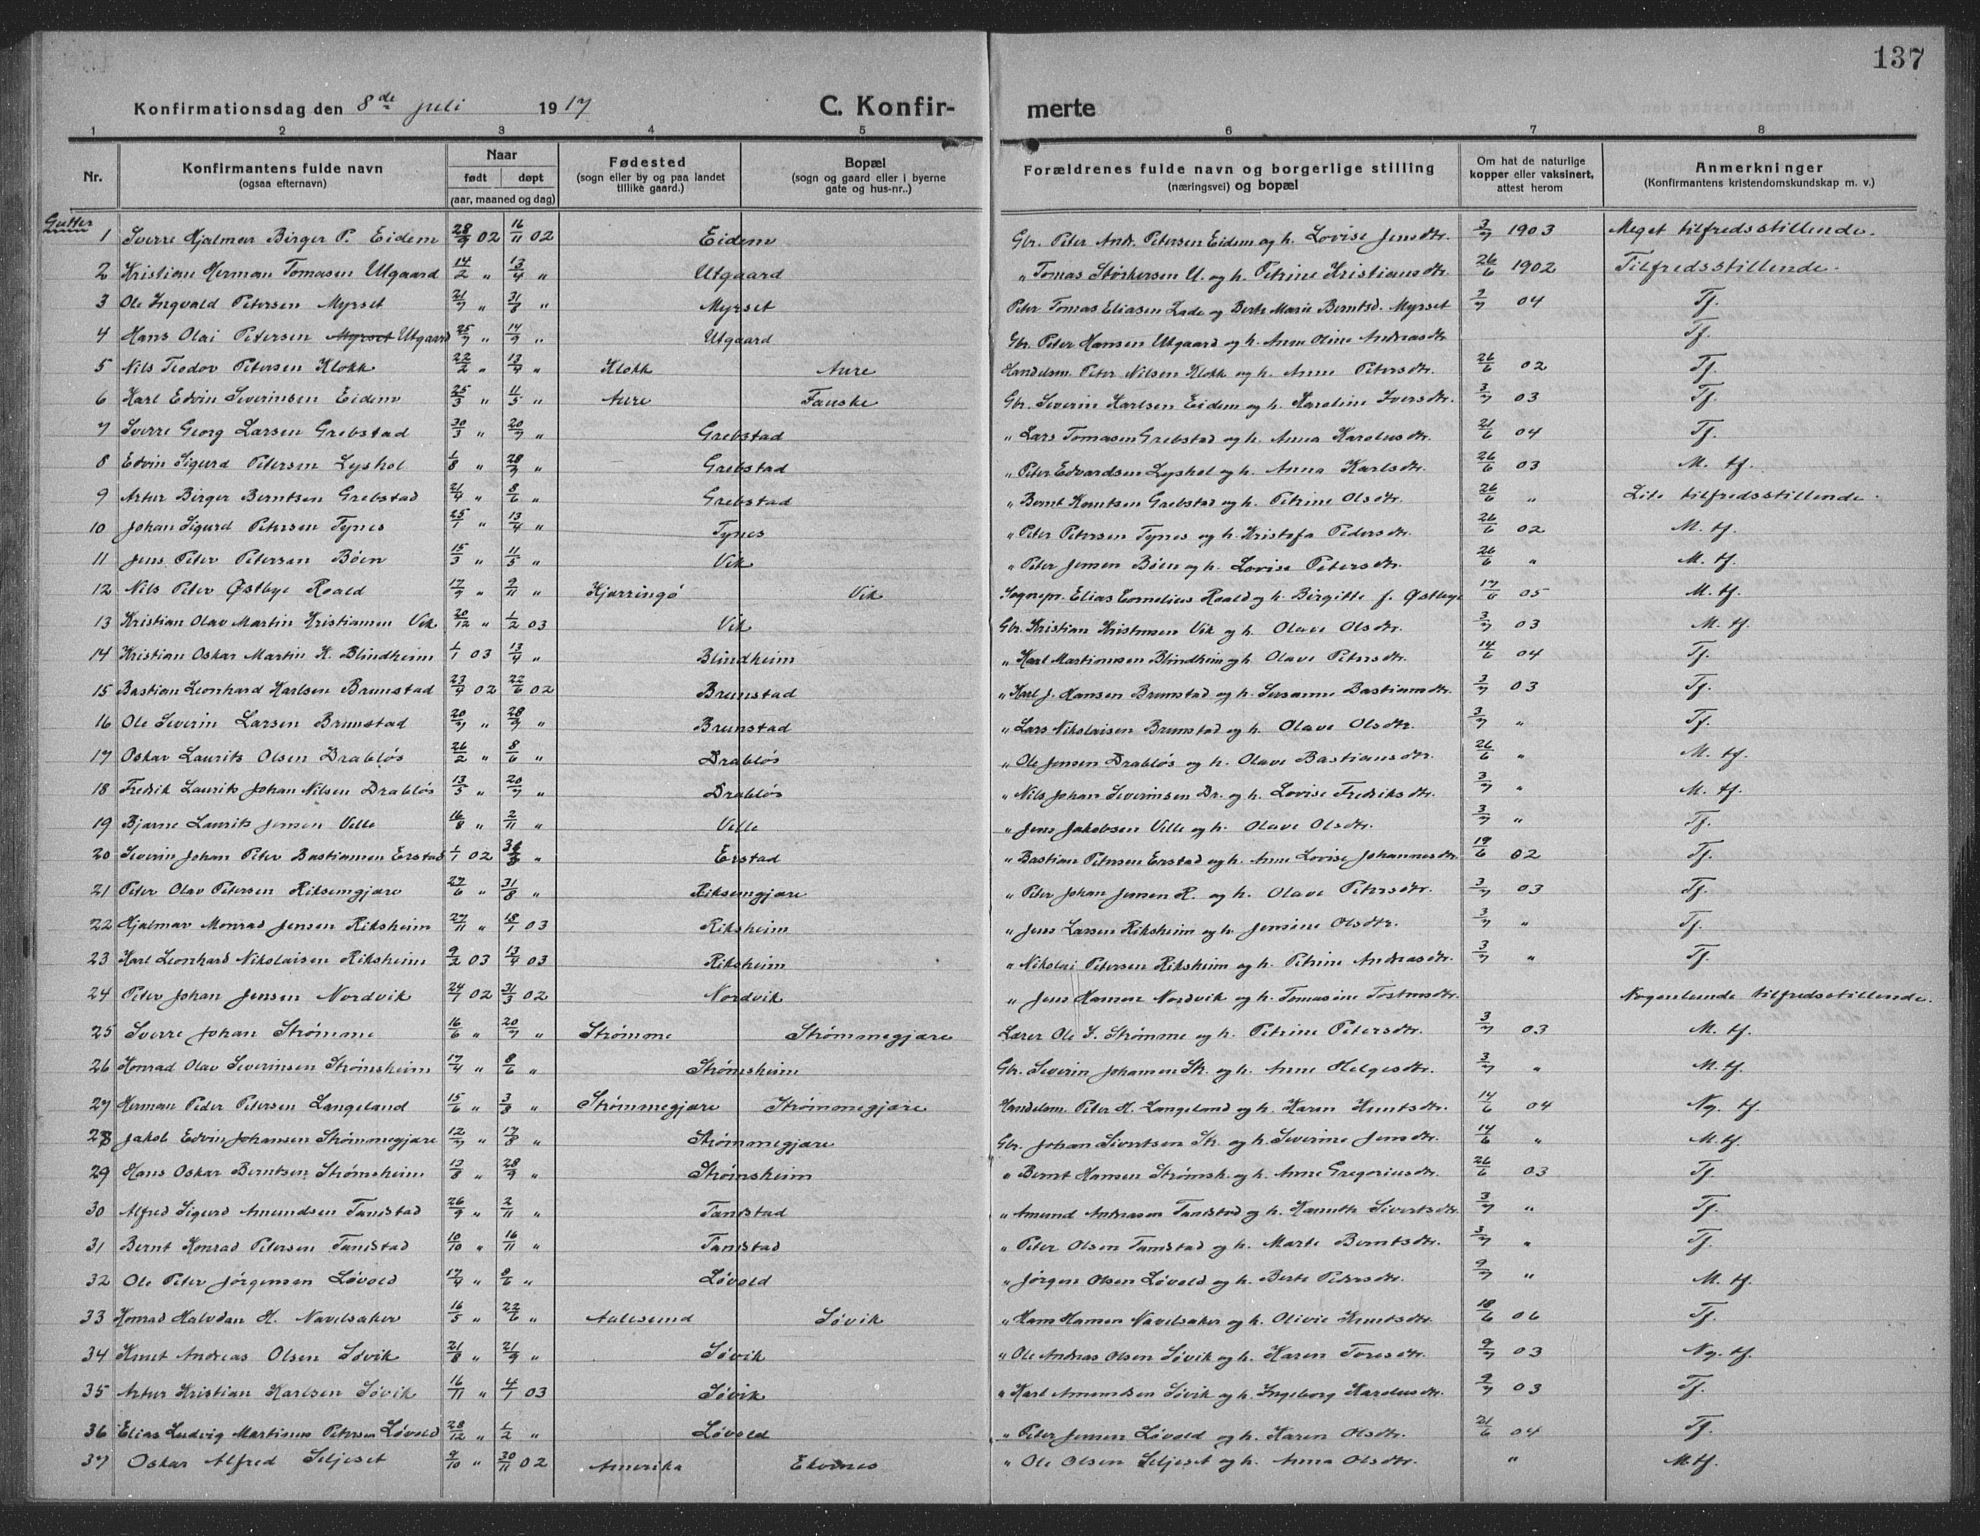 137
Konfirmationsdag den 8de juli 1917 C. Konfir- merte
1 2 3 4 5 6 7 8
Nr. Konfirmantens fulde navn (ogsaa efternavn) Naar født døpt (aar, maaned og dag) Fødested (sogn eller by og paa landet tillike gaard.) Bopæl (sogn og gaard eller i byerne gate og hus-nr..) Forældrenes fulde navn og borgerlige stilling (næringsvei) og bopæl Om hat de naturlige kopper eller vaksinert, attest herom Anmerkninger (Konfirmantens kristendomskundskap m. v.)
Gutter
1 Sverre Hjalmar Birger P. Eidem 28/9 02 16/11 02 Eidem Gbr. Peter Andr. Petersen Eidem og h. Lovise Jensdtr. 3/7 1903 Meget tilfredsstillende.
2 Kristian Herman Tomasen Utgaard 14/2 " 13/4 " Utgaard " Tomas Størkersen U. og h. Petrine Kristiansdtr. 26/6 1902 Tilfredsstillende.
3 Ole Ingvald Petersen Myrset 21/7 " 31/8 " Myrset Peter Tomas Eliasen Lade og Berte Marie Berntsd. Myrset 3/7 04 Tf.
4 Hans Olai Petersen Myrset Utgaard 25/7 " 14/9 " Utgaard Gbr. Peter Hansen Utgaard og h. Anne Oline Andreasdtr Tf.
5 Nils Teodor Petersen Klokk 22/2 " 13/4 " Klokk Aure Handelsm. Peter Nilsen Klokk og h. Anne Petersdtr. 26/6 02 Tf.
6 Karl Edvin Severinsen Eidem 25/3 " 11/5 " Aure Fauske Gbr. Severin Karlsen Eidem og h. Karoline Iversdtr. 3/7 03 Tf.
7 Sverre Georg Larsen Grebstad 30/3 " 20/7 " Grebstad " Lars Tomasen Grebstad og h. Anna Karolusdtr. 21/6 04 Tf.
8 Edvin Sigurd Petersen Lyshol 1/8 " 28/9 " Grebstad " Peter Edvardsen Lyshol og h. Anna Karlsdtr. 26/6 03 M. tf.
9 Artur Birger Berntsen Grebstad 21/4 " 8/6 " Grebstad " Bernt Knutsen Grebstad og h. Petrine Olsdtr. 26/6 " Lite tilfredsstillende.
10 Johan Sigurd Petersen Tynes 25/1 " 13/4 " Tynes " Peter Petersen Tynes og h. Kristofa Pedersdtr. 26/6 02 M. tf.
11 Jens Peter Petersen Bøen 15/3 " 11/5 " Vik " Peter Jensen Bøen og h. Lovise Petersdtr. 26/6 " M. tf.
12 Nils Peter Østbye Roald 17/9 " 9/11 " Kjerringø Vik Sognepr. Elias Cornelius Roald og h. Birgitte f. Østbye 17/6 05 M. tf.
13 Kristian Olav Martin Kristiansen Vik 20/12 " 1/2 03 Vik Gbr. Kristian Kristensen Vik og h. Olave Olsdtr. 3/7 03 M. tf.
14 Kristian Oskar Martin K. Blindheim 1/1 03 13/4 " Blindheim " Karl Martinusen Blindheim og h. Olave Petersdtr. 14/6 04 Tf.
15 Bastian Leonhard Karlsen Brunstad 23/4 02 22/6 02 Brunstad " Karl J. Hansen Brunstad og h. Susanne Bastiansdtr. 3/7 03 Tf.
16 Ole Severin Larsen Brunstad 20/7 " 28/9 " Brunstad " Lars Nikolaisen Brunstad og h. Olave Olsdtr. 3/7 " Tf.
17 Oskar Laurits Olsen Drabløs 26/2 " 8/6 " Drabløs " Ole Jensen Drabløs og h. Olave Bastiansdtr. 26/6 " M. tf.
18 Fredrik Laurits Johan Nilsen Drabløs 13/5 " 20/7 " Drabløs " Nils Johan Severinsen Dr. og h. Lovise Fredriksdtr. 3/7 " M. tf.
19 Bjarne Laurits Jensen Velle 16/8 " 2/11 " Velle " Jens Jakobsen Velle og h. Olave Olsdtr. 3/7 " Tf.
20 Severin Johan Peter Bastiansen Erstad 1/1 02 31/3 " Erstad " Bastian Petersen Erstad og h. Anne Lovise Johannesdtr. 19/6 02 Tf.
21 Peter Olav Petersen Riksemgjære 27/6 " 31/8 " Riksemgjære " Peter Johan Jensen R. og h. Olave Petersdtr. 3/7 03 Tf.
22 Hjalmar Monrad Jensen Riksheim 27/11 " 18/1 03 Riksheim " Jens Larsen Riksheim og h. Jensine Olsdtr. 3/7 " Tf.
23 Karl Leonhard Nikolaisen Riksheim 9/2 03 13/4 03 Riksheim " Nikolai Petersen Riksheim og h. Petrine Andreasdtr. 3/7 " Tf.
24 Peter Johan Jensen Nordvik 24/1 02 31/3 02 Nordvik " Jens Hansen Nordvik og h. Tomasine Tostensdtr. Nogenlunde tilfredsstillende.
25 Sverre Johan Strømme 16/6 " 20/7 " Strømme Strømmegjære Lærer Ole I. Strømme og h. Petrine Petersdtr. 3/7 03 M. tf.
26 Konrad Olav Severinsen Strømsheim 17/4 " 8/6 " Strømsheim Gbr. Severin Johansen Sh. og h. Anne Helgesdtr. 3/7 " M. tf.
27 Herman Peder Petersen Langeland 15/6 " 3/8 " Strømmegjære Strømmegjære Handelsm. Peter H. Langeland og h. Karen Knutsdtr. 14/6 04 Ng. tf.
28 Jakob Edvin Johansen Strømmegjære 12/7 " 17/8 " Strømmegjære Gbr. Johan Sivertsen Sh. og h. Severine Jensdtr. 14/6 " M. tf.
29 Hans Oskar Berntsen Strømsheim 13/8 " 28/9 " Strømsheim " Bernt Hansen Strømsh. og h. Anne Gregoriusdtr. 26/6 03 Tf.
30 Alfred Sigurd Amundsen Tandstad 26/9 " 2/11 " Tandstad " Amund Andreasen Tandstad og h. Hanna Sivertsdtr. 3/7 " Tf.
31 Bernt Konrad Petersen Tandstad 10/10 " 16/11 " Tandstad " Peter Olsen Tandstad og h. Marte Berntsdtr. 3/7 " Tf.
32 Ole Peter Jørgensen Løvold 17/4 " 8/6 " Løvold " Jørgen Olsen Løvold og h. Berte Pedersdtr. 9/7 " M. tf.
33 Konrad Halvdan H. Navelsaker 16/5 " 22/6 " Aalesund Søvik " Hans Hansen Navelsaker og h. Olivie Knutsdtr. 18/6 06 Tf.
34 Knut Andreas Olsen Søvik 21/8 " 21/9 " Søvik " Ole Andreas Olsen Søvik og h. Karen Toresdtr. 9/7 03 Ng. tf.
35 Artur Kristian Karlsen Søvik 16/11 " 4/1 03 Søvik " Karl Amundsen Søvik og h. Ingeborg Karolusdtr. 9/7 03 Tf.
36 Elias Ludvig Martinus Petersen Løvold 28/12 " 1/2 " Løvold " Peter Jensen Løvold og h. Karen Olsdtr. 21/6 04 Tf.
37 Oskar Alfred Seljeset 9/10 " 30/11 02 Amerika Ekornes " Ole Olsen Seljeset og h. Anna Olsdtr. " M. tf.